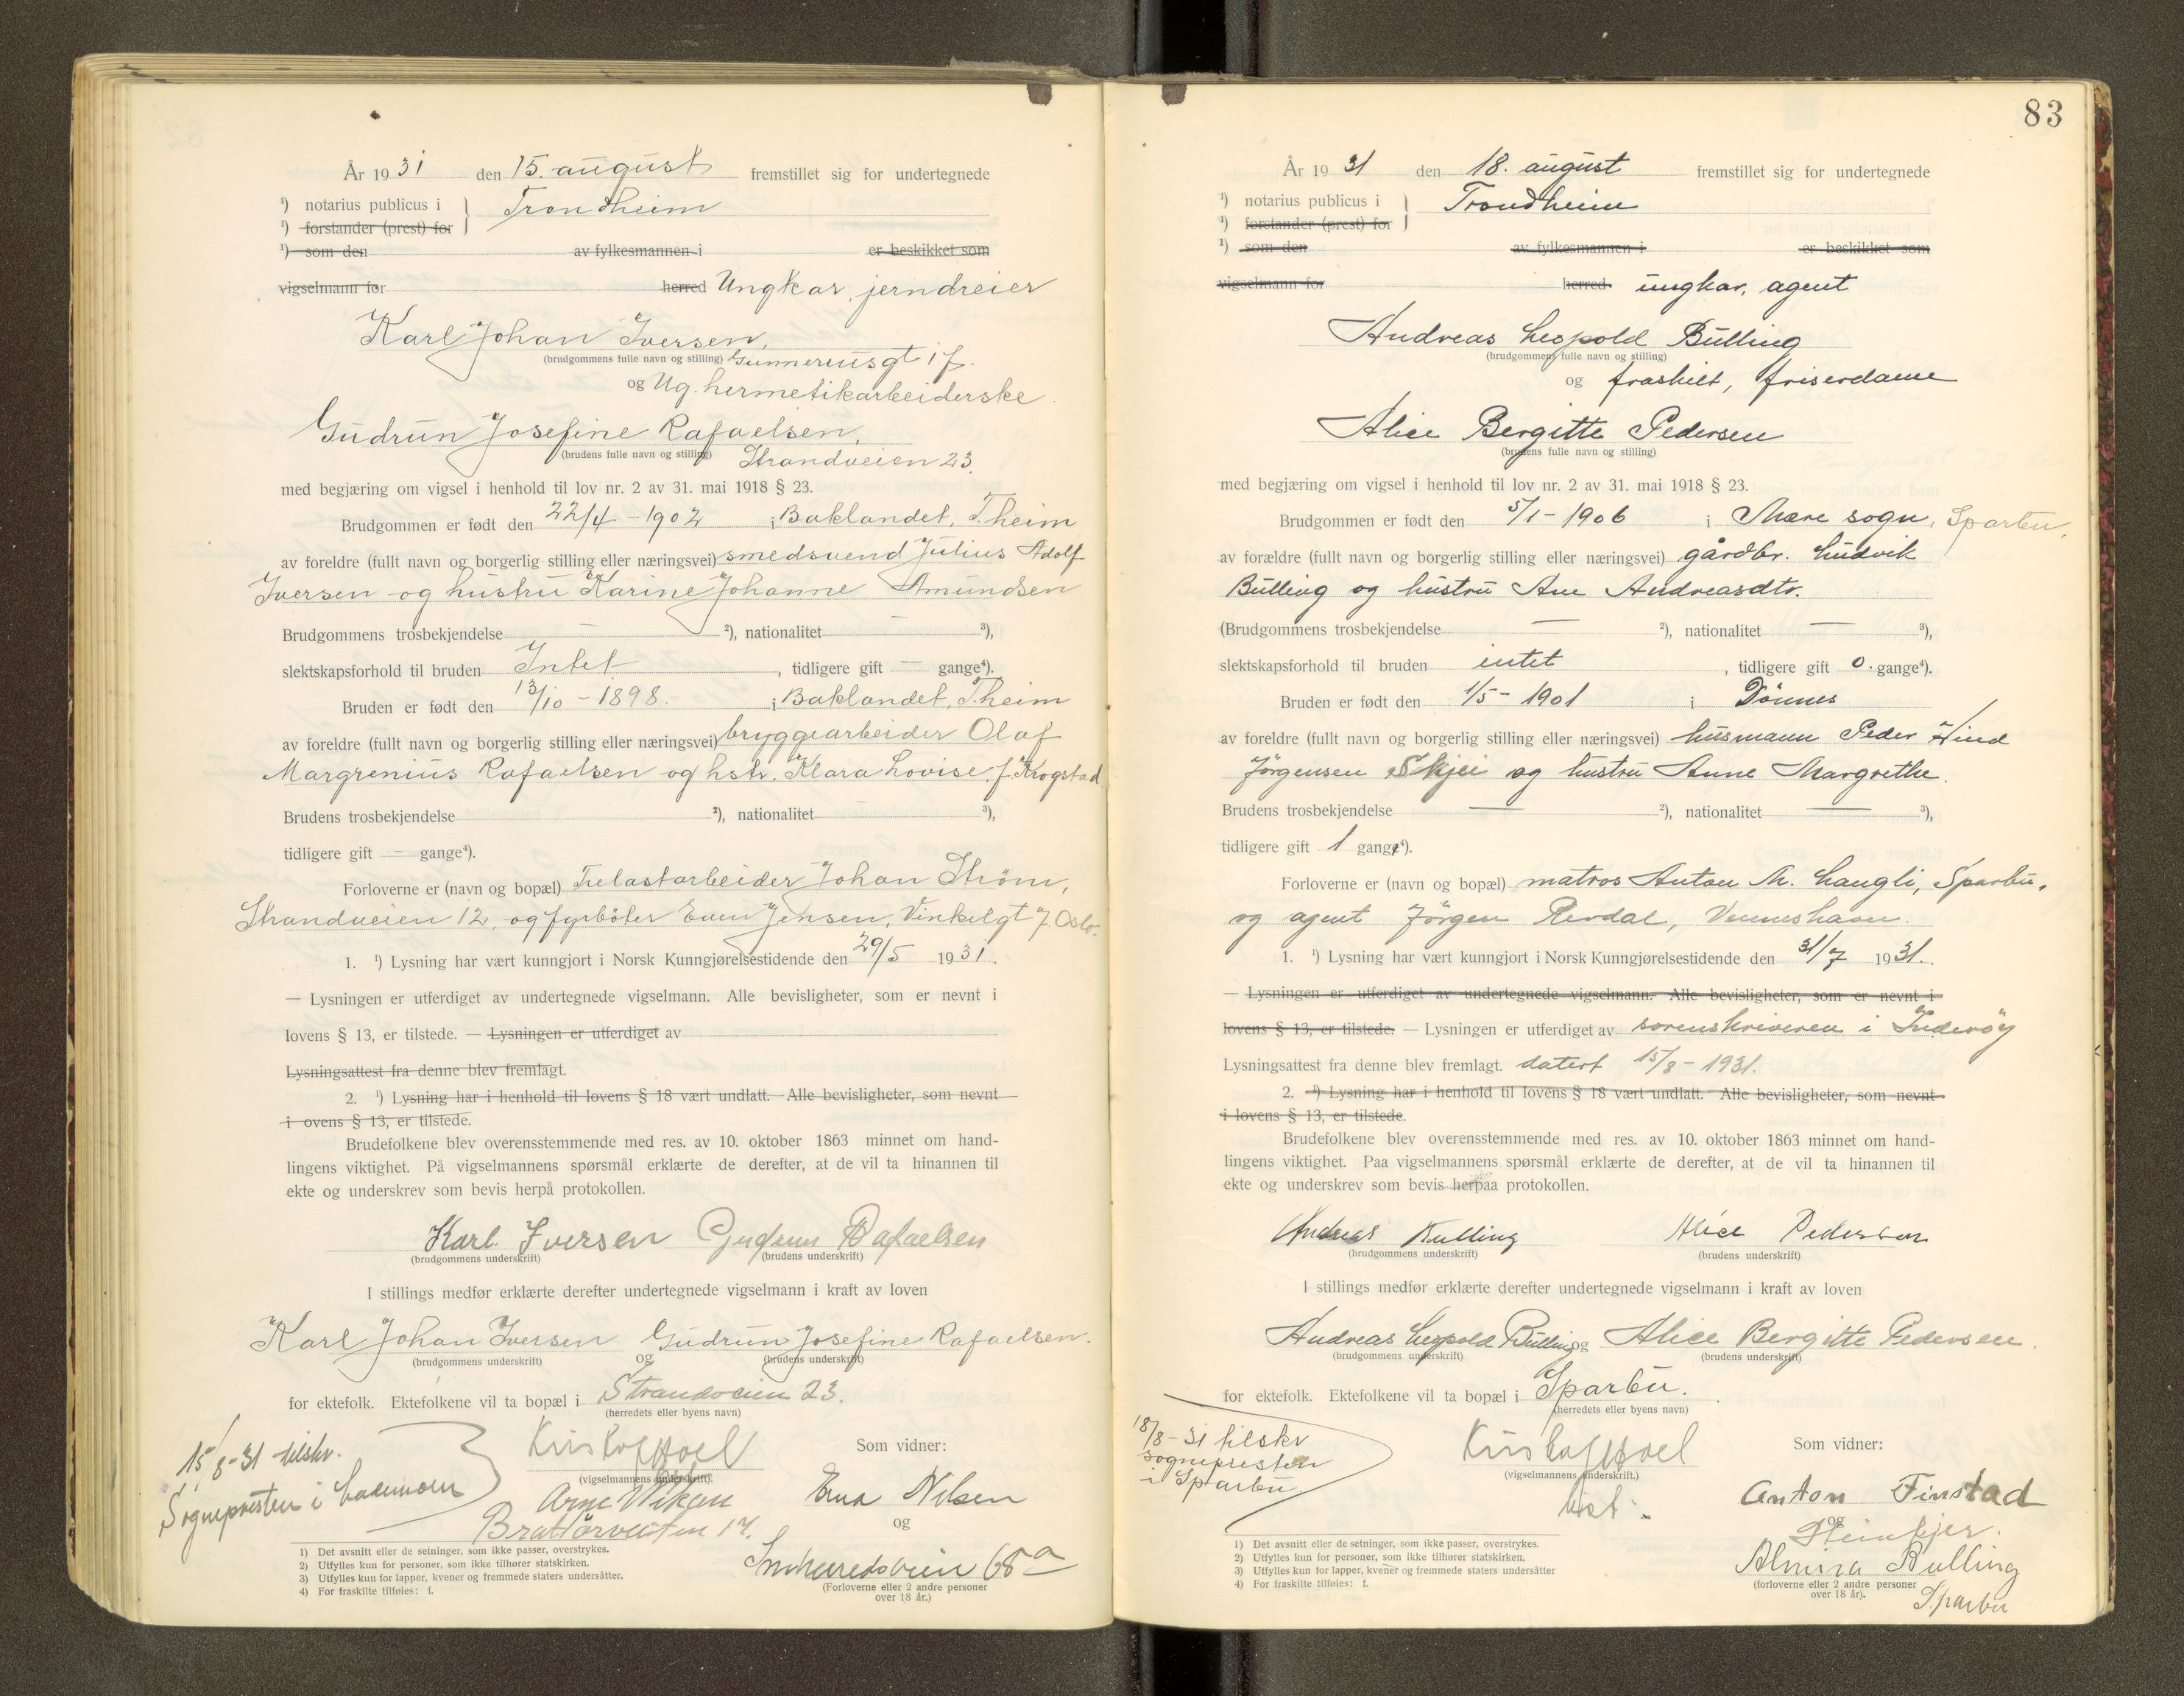 År 1931 den 15. august fremstillet sig for undertegnede
¹) notarius publicus i } Trondheim
¹) forstander (prest) for
¹) som den av fylkesmannen i er beskikket som
vigselmann for herred Ungkar, jerndreier
Karl Johan Iversen,
(brudgommens fulle navn og stilling) Gunnerusgt 1f.
og Ug. hermetikarbeiderske
Gudrun Josefine Rafaelsen,
(brudens fulle navn og stilling) Strandveien 23.
med begjæring om vigsel i henhold til lov nr. 2 av 31. mai 1918 § 23.
Brudgommen er født den 22/4 - 1902 i Baklandet, T.heim
av foreldre (fullt navn og borgerlig stilling eller næringsvei) smedsvend Julius Adolf
Iversen og hustru Karine Johanne Amundsen
Brudgommens trosbekjendelse — ²), nationalitet — ³),
slektskapsforhold til bruden Intet, tidligere gift — gange⁴).
Bruden er født den 13/10 - 1898. i Baklandet, T.heim
av foreldre (fullt navn og borgerlig stilling eller næringsvei) bryggearbeider Olaf
Margrenius Rafaelsen og hstr. Klara Lovise, f. Krogstad
Brudens trosbekjendelse ²), nationalitet ³),
tidligere gift — gange⁴).
Forloverne er (navn og bopæl) Trelastarbeider Johan Strøm,
Strandveien 12, og fyrbøter Even Jensen, Vinkelgt 7. Oslo.
1. ¹) Lysning har vært kunngjort i Norsk Kunngjørelsestidende den 29/5 1931.
— Lysningen er utferdiget av undertegnede vigselmann. Alle bevisligheter, som er nevnt i
lovens § 13, er tilstede. — Lysningen er utferdiget av
Lysningsattest fra denne blev fremlagt.
2. ¹) Lysning har i henhold til lovens § 18 vært undlatt. Alle bevisligheter, som nevnt
i ovens § 13, er tilstede.
Brudefolkene blev overensstemmende med res. av 10. oktober 1863 minnet om hand-
lingens viktighet. På vigselmannens spørsmål erklærte de derefter, at de vil ta hinannen til
ekte og underskrev som bevis herpå protokollen.
Karl Iversen Gudrun Rafaelsen
(brudgommens underskrift) (brudens underskrift)
I stillings medfør erklærte derefter undertegnede vigselmann i kraft av loven
Karl Johan Iversen og Gudrun Josefine Rafaelsen.
(brudgommens underskrift) (brudens underskrift)
for ektefolk. Ektefolkene vil ta bopæl i Strandveien 23.
(herredets eller byens navn)
15/8-31 tilskr.
Sognepresten i Lademoen
(vigselmannens underskrift).
Som vidner:
Arne Wikan
Erna Nilsen
og
Innherredsveien 68a
(Forloverne eller 2 andre personer
over 18 år.)
1) Det avsnitt eller de setninger, som ikke passer, overstrykes.
2) Utfylles kun for personer, som ikke tilhører statskirken.
3) Utfylles kun for lapper, kvener og fremmede staters undersåtter.
4) For fraskilte tilføies: f.
83
År 1931 den 18. august fremstillet sig for undertegnede
¹) notarius publicus i } Trondheim
¹) forstander (prest) for
¹) som den av fylkesmannen i er beskikket som
vigselmann for herred ungkar, agent
Andreas Leopold Bulling
(brudgommens fulle navn og stilling)
og fraskilt, friserdame
Alice Bergitte Pedersen
(brudens fulle navn og stilling)
med begjæring om vigsel i henhold til lov nr. 2 av 31. mai 1918 § 23.
Brudgommen er født den 5/1 - 1906 i Mære sogn, Sparbu.
av forældre (fullt navn og borgerlig stilling eller næringsvei) gårdbr. Ludvik
Bulling og hustru Ane Andreasdtr.
(Brudgommens trosbekjendelse — ²), nationalitet — ³),
slektskapsforhold til bruden intet, tidligere gift 0. gange⁴).
Bruden er født den 1/5 - 1901 i Dønnes
av foreldre (fullt navn og borgerlig stilling eller næringsvei) husmann Peder Hind
Jørgensen Skjei og hustru Anne Margrethe.
Brudens trosbekjendelse — ²), nationalitet — ³),
tidligere gift 1 gange⁴).
Forloverne er (navn og bopæl) matros Anton M. Langli, Sparbu,
og agent Jørgen Revdal, Venneshavn.
1. ¹) Lysning har vært kunngjort i Norsk Kunngjørelsestidende den 31/7 1931.
— Lysningen er utferdiget av undertegnede vigselmann. Alle bevisligheter, som er nevnt i
lovens § 13, er tilstede. — Lysningen er utferdiget av sorenskriveren i Inderøy
Lysningsattest fra denne blev fremlagt. datert 15/8 - 1931.
2. ¹) Lysning har i henhold til lovens § 18 vært undlatt. Alle bevisligheter, som nevnt
i lovens § 13, er tilstede.
Brudefolkene blev overensstemmende med res. av 10. oktober 1863 minnet om hand-
lingens viktighet. Paa vigselmannens spørsmål erklærte de derefter, at de vil ta hinannen til
ekte og underskrev som bevis herpaa protokollen.
Andreas Bulling Alice Pedersen
(brudgommens underskrift) (brudens underskrift)
I stillings medfør erklærte derefter undertegnede vigselmann i kraft av loven
Andreas Leopold Bulling og Alice Bergitte Pedersen.
(brudgommens underskrift) (brudens underskrift)
for ektefolk. Ektefolkene vil ta bopæl i Sparbu.
(herredets eller byens navn)
18/8-31 tilskr
sognepresten
i Sparbu.
(vigselmannens underskrift.)
Som vidner:
Anton Finstad
og
Steinkjer.
Almira Bulling
(forloverne eller 2 andre personer
over 18 år).
Sparbu
1) Det avsnitt eller de setninger, som ikke passer, overstrykes.
2) Utfylles kun for personer, som ikke tilhører statskirken.
3) Utfylles kun for lapper, kvener og fremmede staters undersåtter
4) For fraskilte tilføies: f.